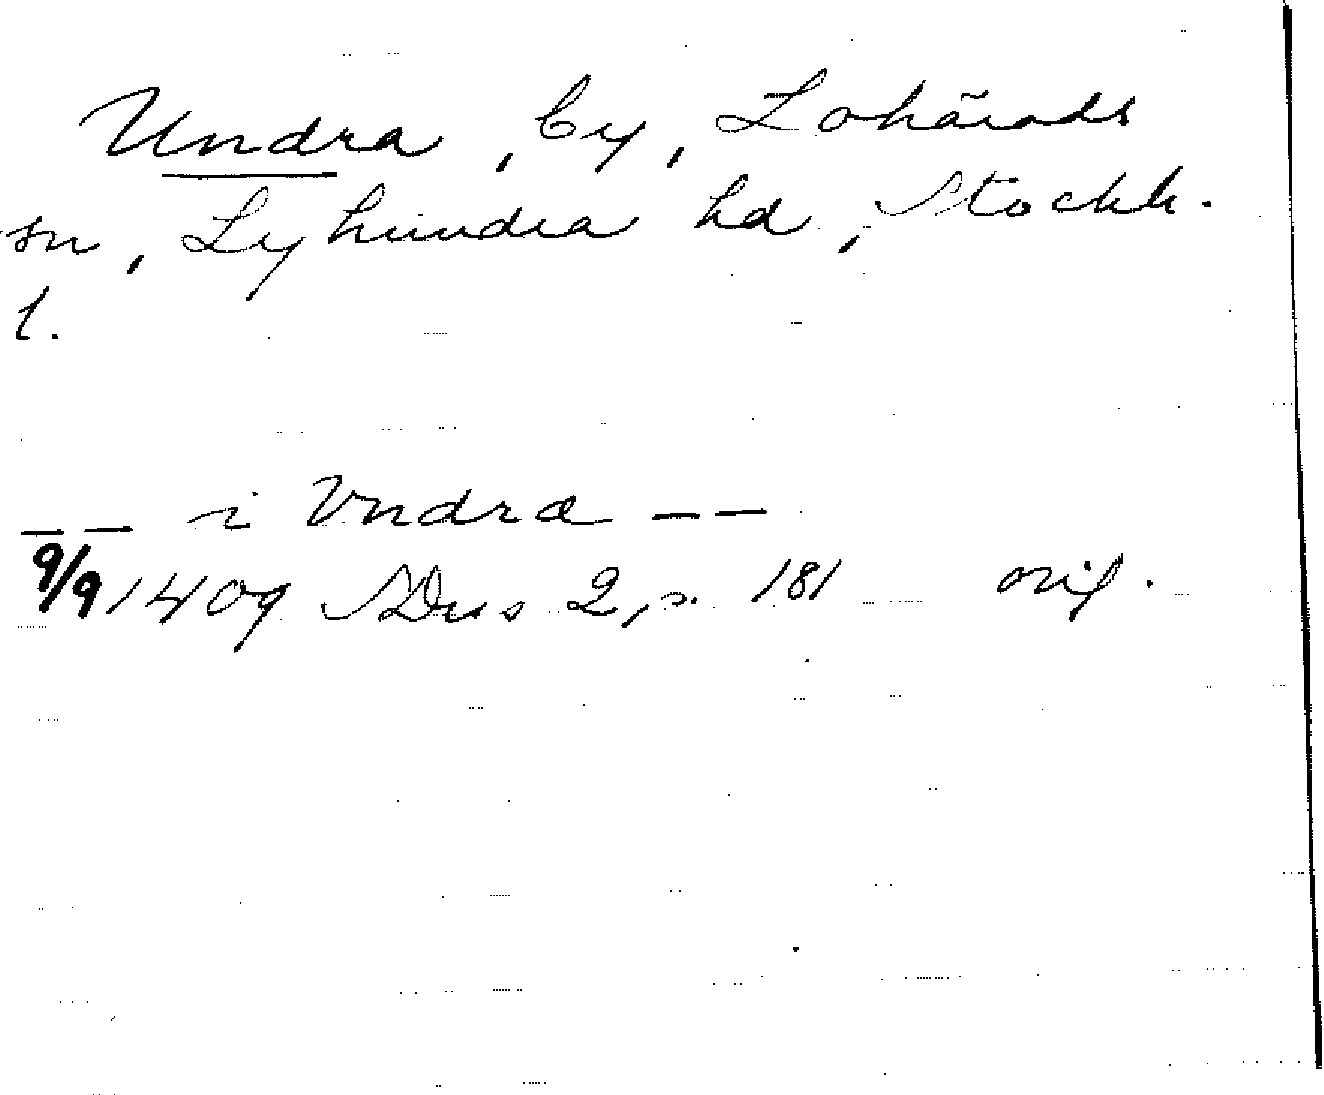 Undra, by, Lohärads
sn, Lyhundra hd, Stockh.
l.
— — i Vndra — —
9/9 1409 SDns 2, s. 181 orig.